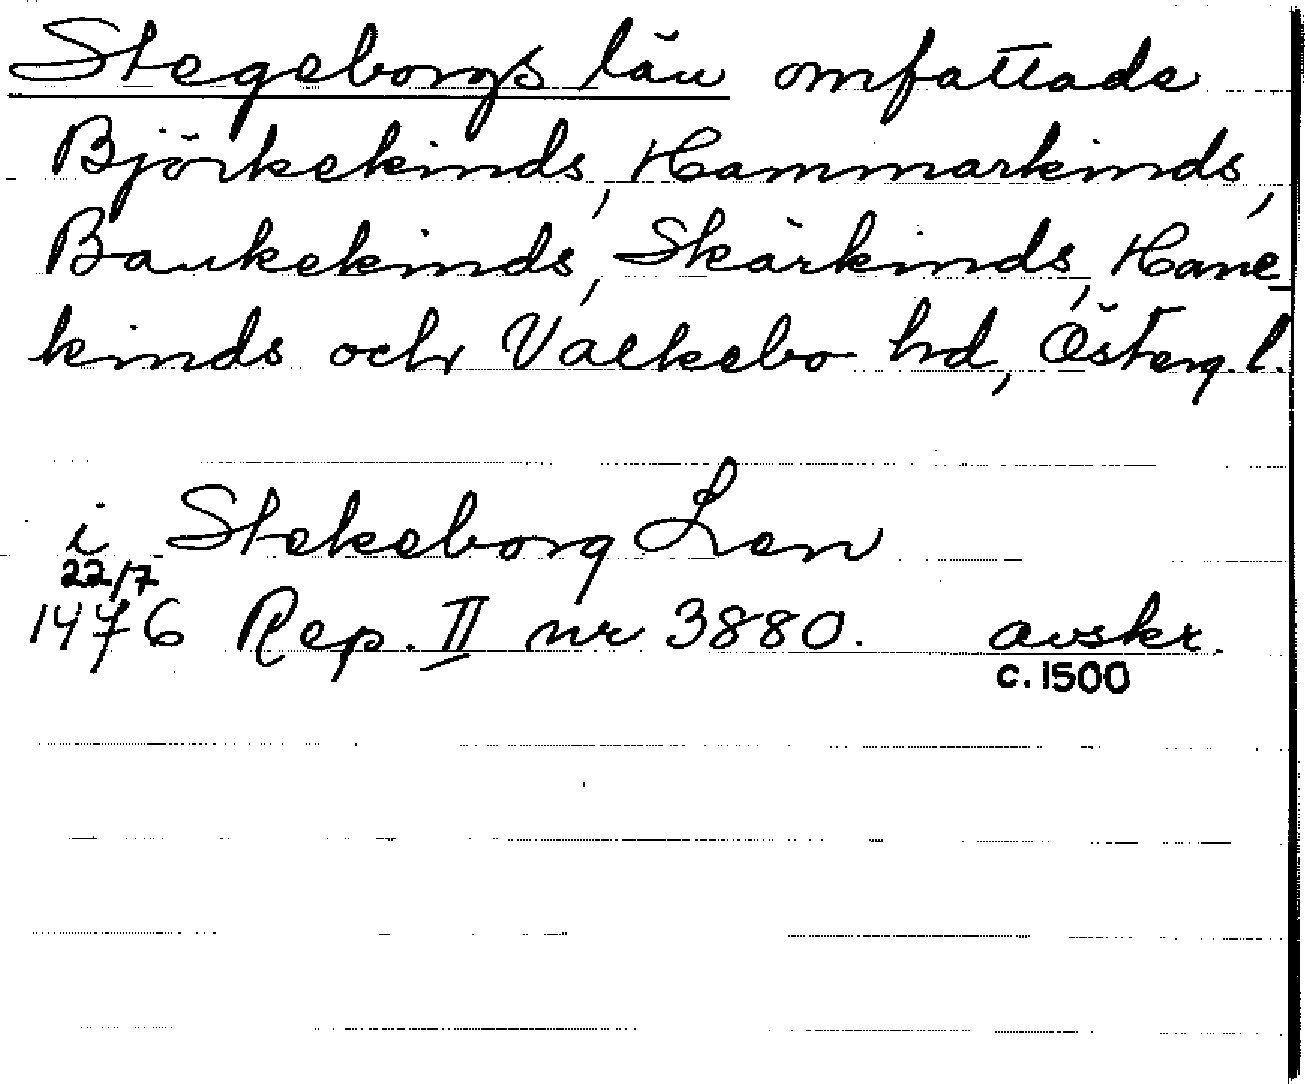 Stegeborgs län omfattade
Björkekinds, Hammarkinds,
Bankekinds, Skärkinds, Hane-
kinds och Valkebo hd, Österg. l.
i Stekeborg Len
22/7
1476 Rep. II nr 3880. avskr.
c. 1500